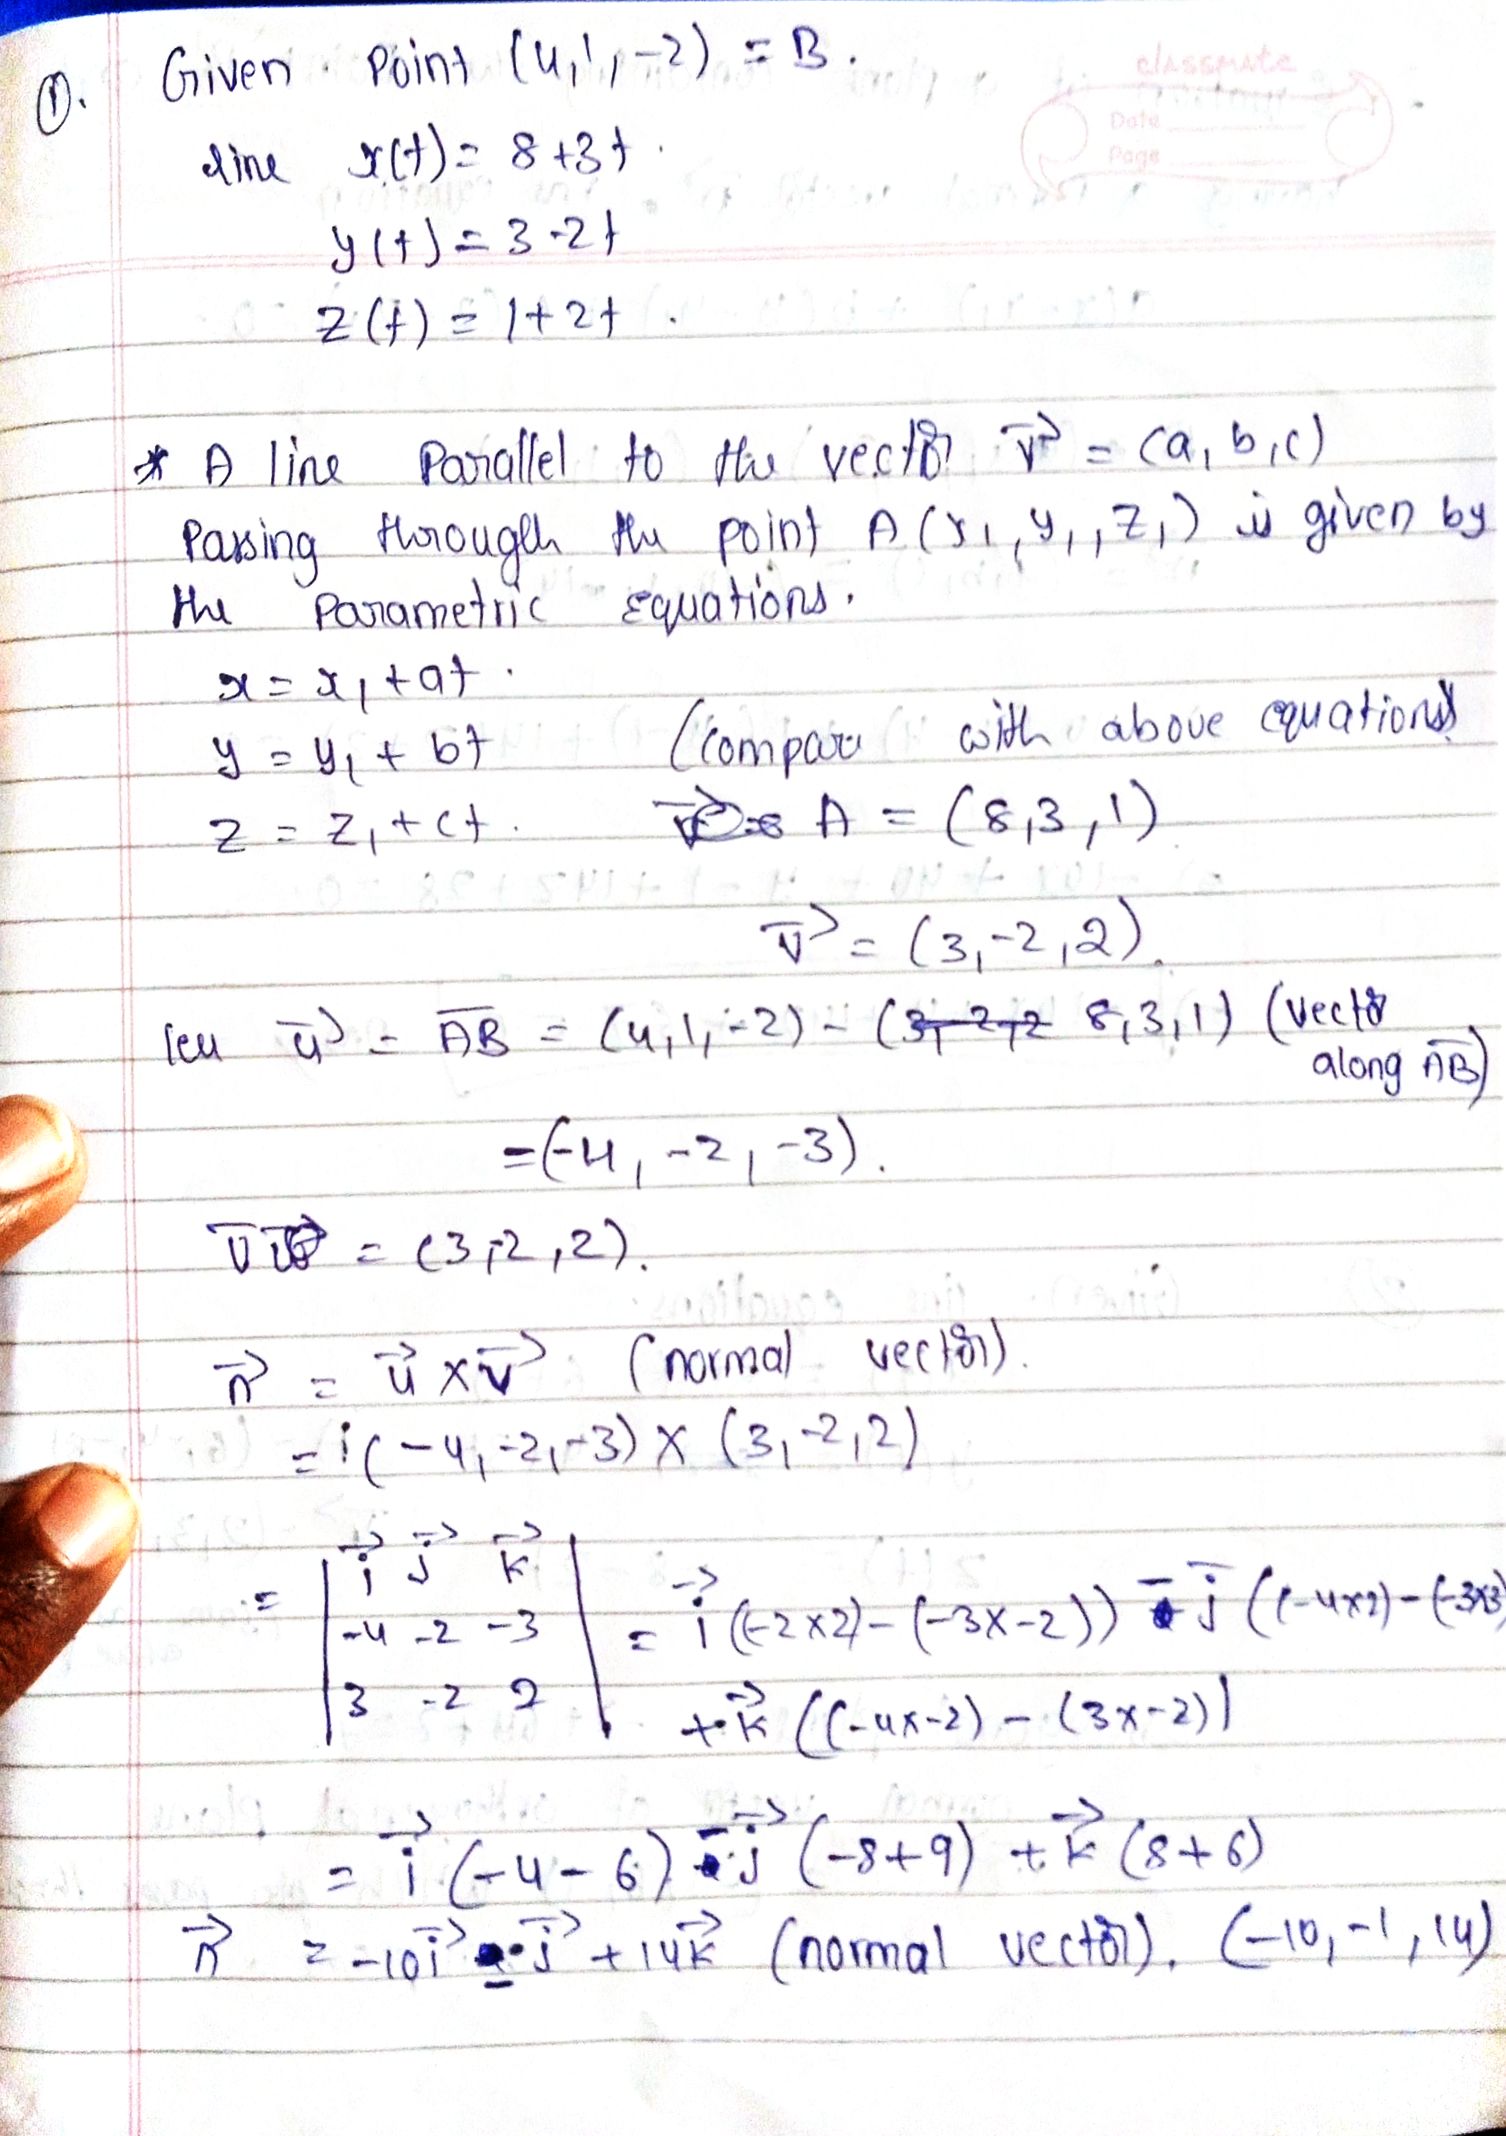 ①. Given Point (4,1,-2) = B.
classmate
Date
Page
line x(t) = 8+3t.
y(t) = 3-2t
z(t) = 1+2t.
* A line Parallel to the vector v⃗ = (a,b,c)
Passing through the point A(x₁,y₁,z₁) is given by
the parametric equations.
x = x₁+at.
y = y₁+bt (compare with above equations)
z = z₁+ct. A = (8,3,1)
v⃗ = (3,-2,2).
u⃗ = AB = (4,1,-2) - (3,-2,2 8,3,1) (vector
along AB)
=(-4,-2,-3).
v⃗ = (3,-2,2).
n⃗ = u⃗ × v⃗ (normal vector).
= (-4,-2,-3) × (3,-2,2)
= | i⃗ j⃗ k⃗ |
-4 -2 -3 = i⃗((-2×2)-(-3×-2)) - j⃗((-4×2)-(-3×3)
3 -2 2 + k⃗((-4×-2)-(3×-2))
= i⃗(-4-6) - j⃗(-8+9) + k⃗(8+6)
n⃗ = -10i⃗ - j⃗ + 14k⃗ (normal vector). (-10,-1,14)